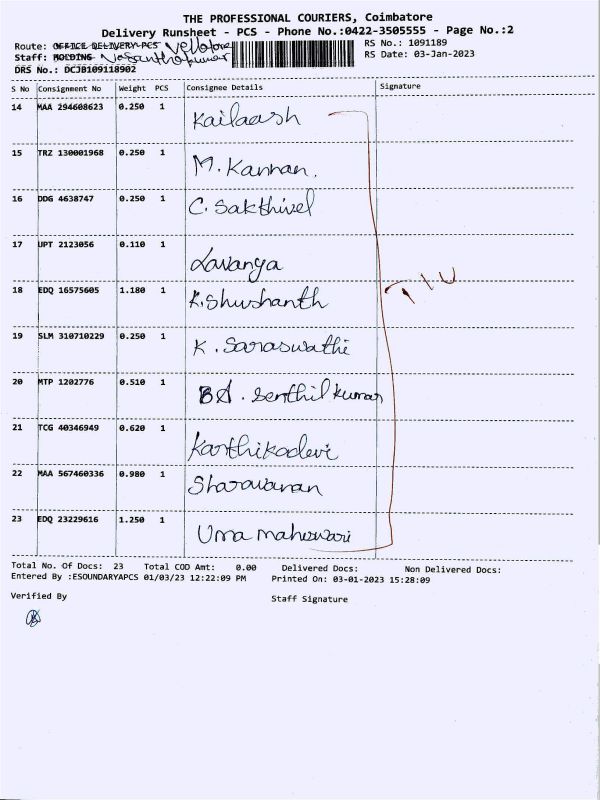 THE PROFESSIONAL COURIERS, Coimbatore
Delivery Runsheet - PCS - Phone No.:0422-3505555 - Page No.:2
Route: OFFICE DELIVERY PCS Vellalore
RS No.: 1091189
Staff: HOLDING Vasanthakumar
RS Date: 03-Jan-2023
DRS No.: DCJB109118902
S No Consignment No Weight PCS Consignee Details Signature
14 MAA 294608623 0.250 1 Kailaash
15 TRZ 130001968 0.250 1 M. Kannan.
16 DDG 4638747 0.250 1 C. Sakthivel
17 UPT 2123056 0.110 1 Lavanya
18 EDQ 16575605 1.180 1 K. Shushanth
19 SLM 310710229 0.250 1 K. Saraswathi
20 MTP 1202776 0.510 1 BA. Senthil kumar
21 TCG 40346949 0.620 1 Karthikadevi
22 MAA 567460336 0.980 1 Sharavanan
23 EDQ 23229616 1.250 1 Uma maheswari
Total No. Of Docs: 23 Total COD Amt: 0.00 Delivered Docs: Non Delivered Docs:
Entered By :ESOUNDARYAPCS 01/03/23 12:22:09 PM Printed On: 03-01-2023 15:28:09
Verified By
Staff Signature